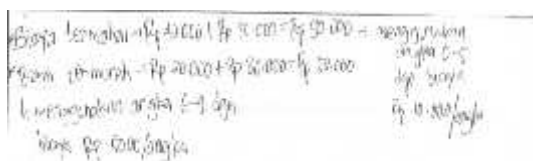 Biaya termahal = Rp 40.000 + Rp 50.000 = Rp 90.000 → menggunakan
angka 5-9
dgn biaya
Rp 10.000/angka
Biaya termurah = Rp 20.000 + Rp 30.000 = Rp 50.000
menggunakan angka dgn
biaya Rp 5000/angka